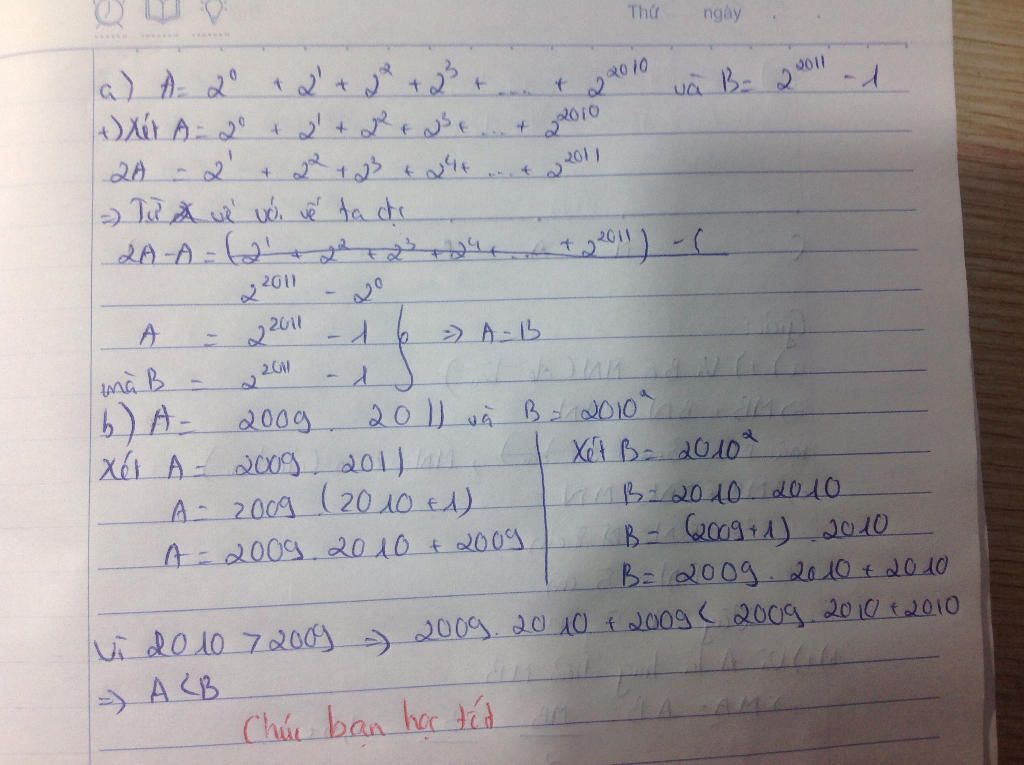 Thứ ngày . .
a) A = 2⁰ + 2¹ + 2² + 2³ + .... + 2²⁰¹⁰ và B = 2²⁰¹¹ - 1
+) Xét A = 2⁰ + 2¹ + 2² + 2³ + ... + 2²⁰¹⁰
2A = 2¹ + 2² + 2³ + 2⁴ + ... + 2²⁰¹¹
=> Từ vế với vế ta đc
2A - A = (2¹ + 2² + 2³ + 2⁴ + ... + 2²⁰¹¹) - (
2²⁰¹¹ - 2⁰
A = 2²⁰¹¹ - 1 } => A = B
mà B = 2²⁰¹¹ - 1
b) A = 2009 . 2011 và B = 2010²
Xét A = 2009 . 2011
A = 2009 (2010 + 1)
A = 2009 . 2010 + 2009
Xét B = 2010²
B = 2010 . 2010
B = (2009 + 1) . 2010
B = 2009 . 2010 + 2010
Vì 2010 > 2009 => 2009 . 2010 + 2009 < 2009 . 2010 + 2010
=> A < B
Chúc bạn học tốt